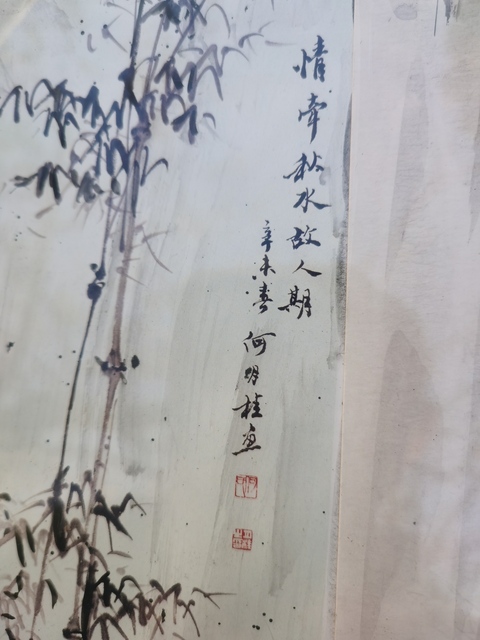 情牵秋水故人期
辛未春何明桂画